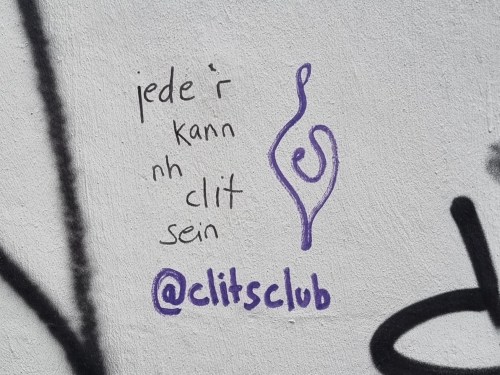 jede*r
kann
nh
clit
sein
@clitsclub